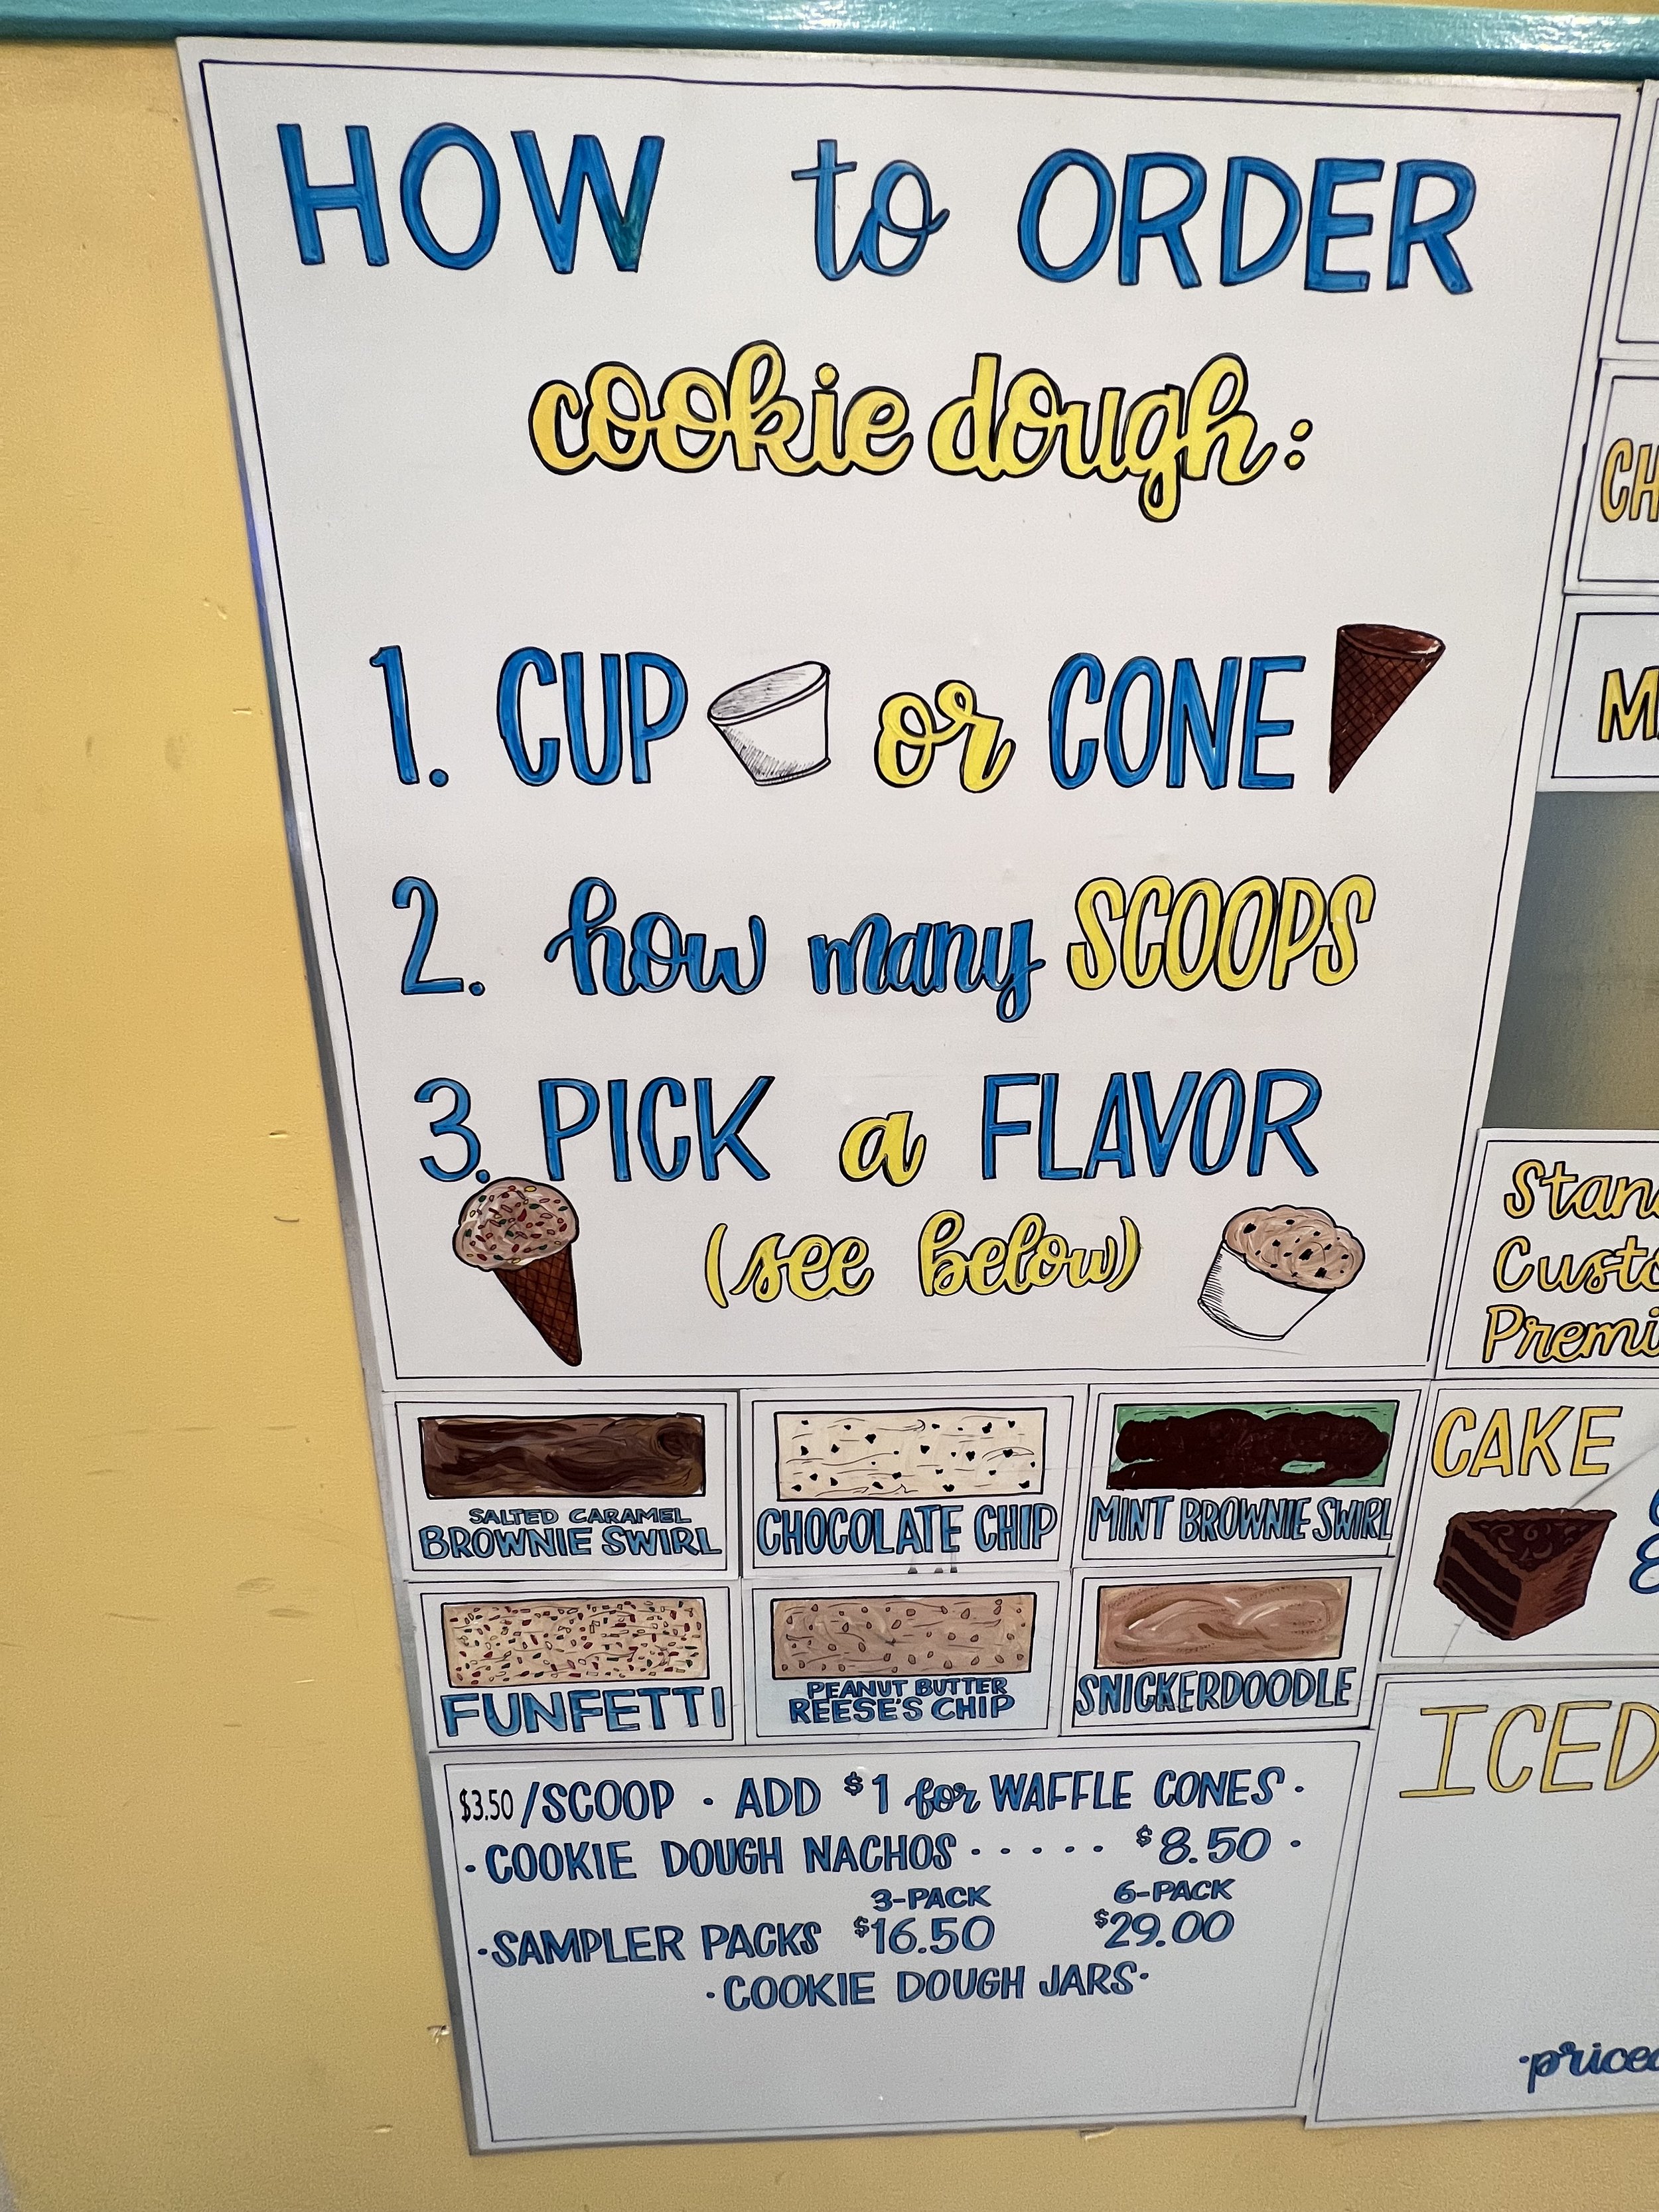 HOW to ORDER
cookie dough:
1. CUP or CONE
2. how many SCOOPS
3. PICK a FLAVOR
(see below)
SALTED CARAMEL
BROWNIE SWIRL
CHOCOLATE CHIP
MINT BROWNIE SWIRL
FUNFETTI
PEANUT BUTTER
REESE'S CHIP
SNICKERDOODLE
$3.50/SCOOP · ADD $1 for WAFFLE CONES ·
· COOKIE DOUGH NACHOS · · · · · $8.50 ·
3-PACK 6-PACK
·SAMPLER PACKS $16.50 $29.00
·COOKIE DOUGH JARS·
CAKE
ICED